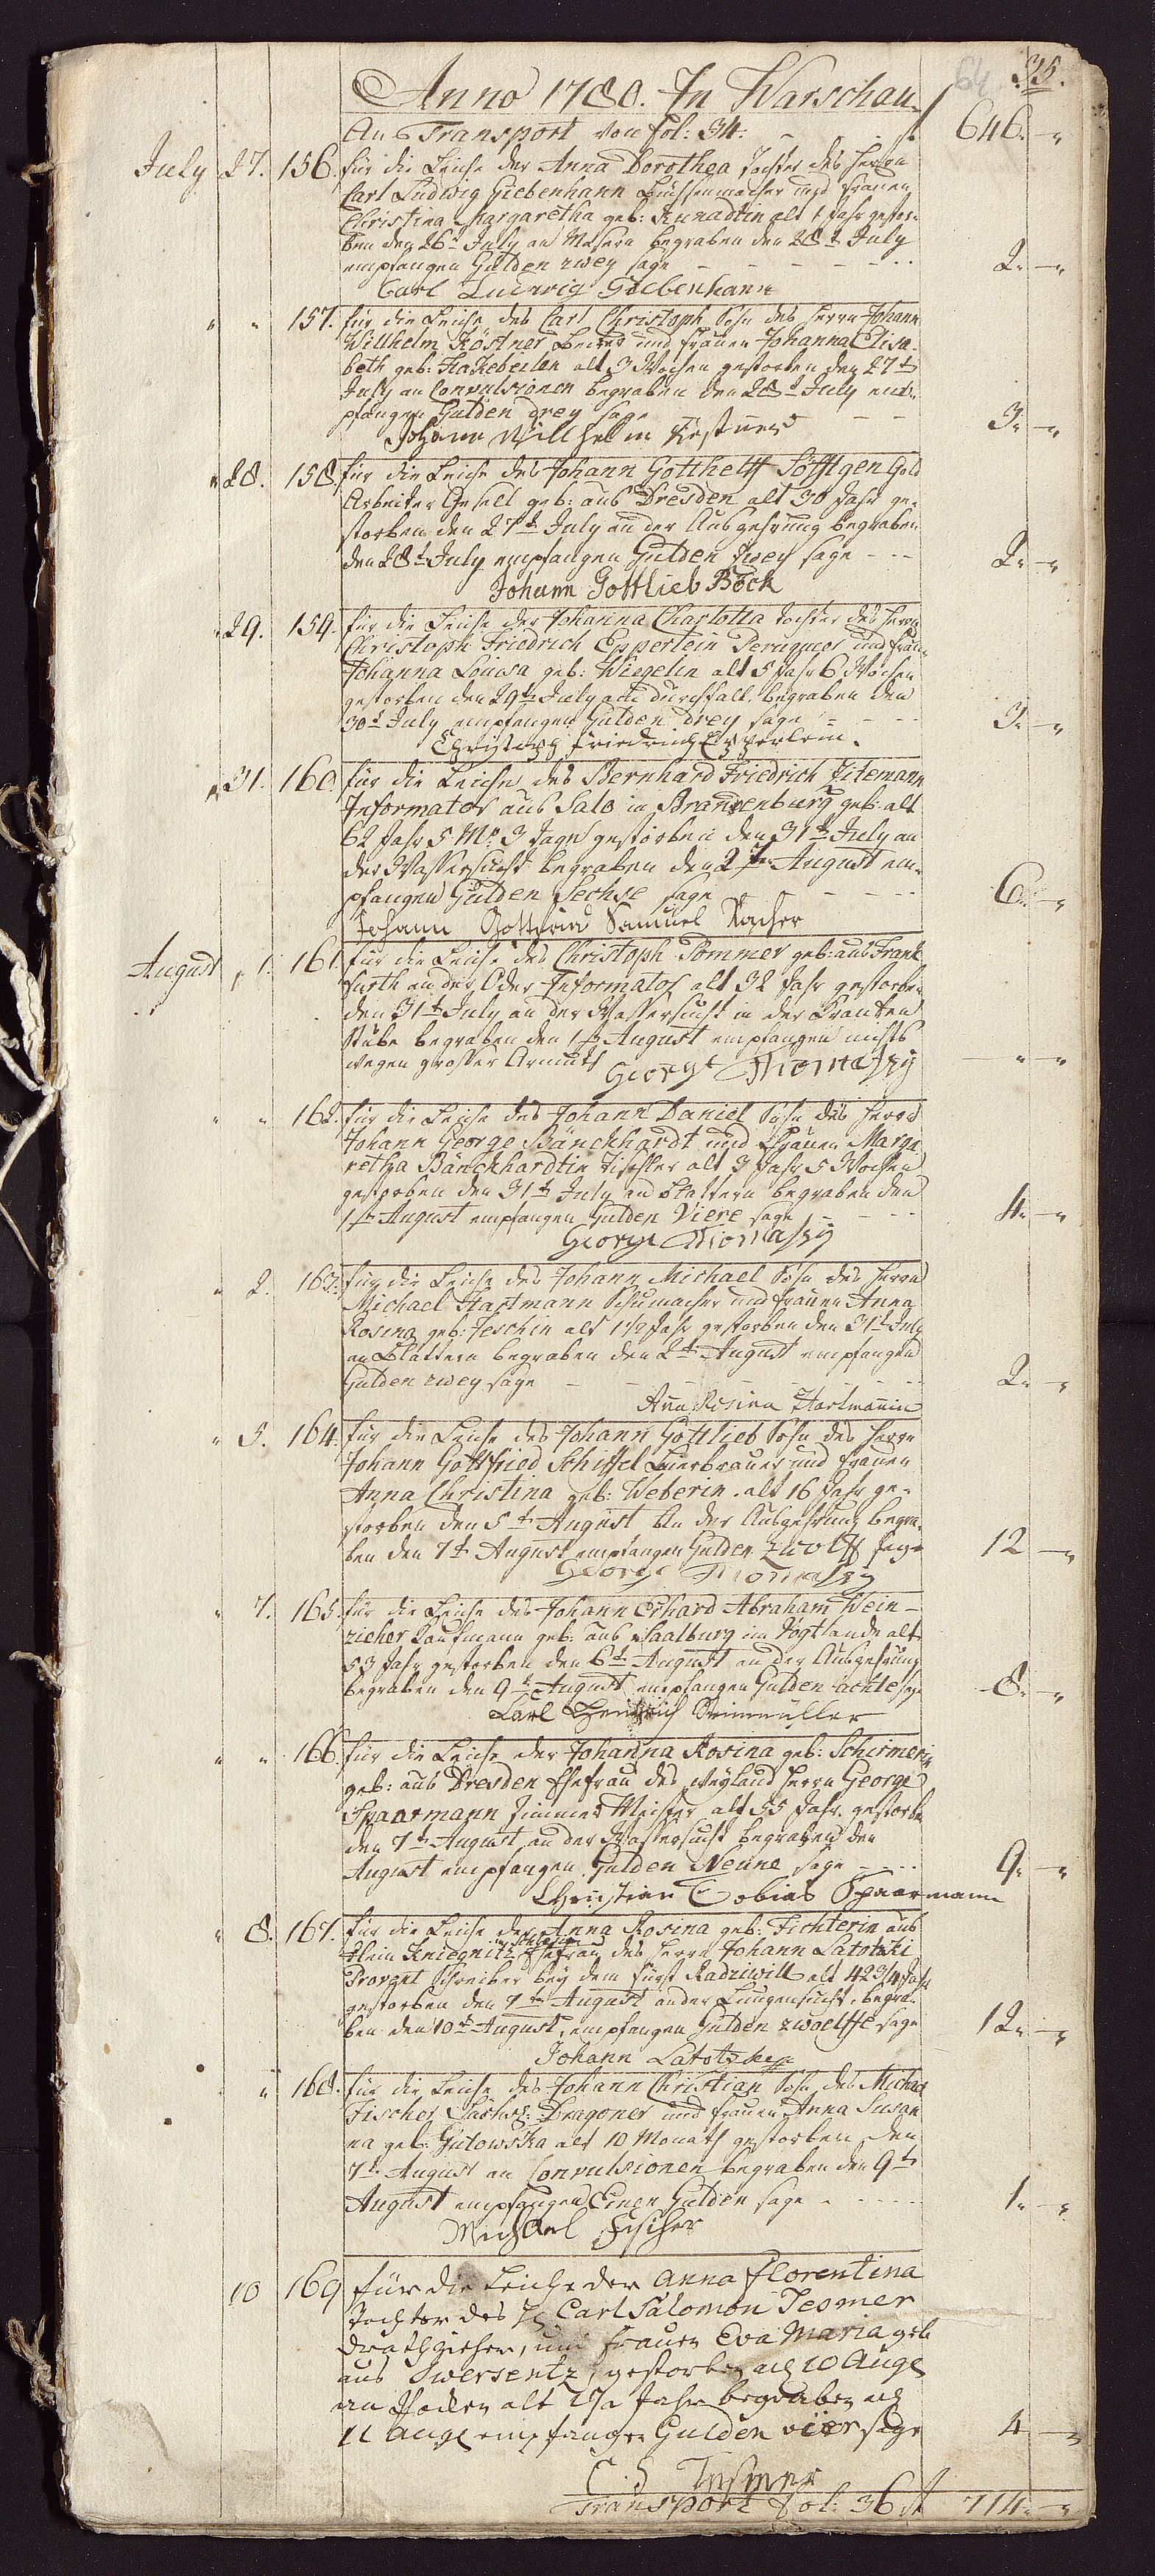 64 35.
Anno 1780. In Warschau
An Transport von Fol: 34: f. 646. "
July 27. 156. für die Leiche der Anna Dorothea Tochter des Herrn
Carl Ludwig Giebenhann Büchsenmacher und Frauen
Christina Margaretha geb: Kunadtin alt 1 Jahr gestor-
ben den 26t July an Masern begraben den 28t July
empfangen Gulden zwey sage 2. "
Carl Ludwig Giebenhann
" " 157. für die Leiche des Carl Christoph Sohn des Herrn Johann
Willhelm Köstner und Frauen Johanna Elisa-
beth geb: Hakebeilen alt 3 Wochen gestorben den 27t
July an Convulsionen begraben den 28t July em-
pfangen Gulden drey sage 3. "
Johann Willhelm Kestner
" 28. 158. für die Leiche des Johann Gotthelff Söfftgen Gold
Arbeiter Gesell geb: aus Dresden alt 30 Jahr ge-
storben den 27t July an der Auszehrung begraben
den 28t July empfangen Gulden zwey sage 2. "
Johann Gottlieb Böck
" 29. 159. für die Leiche der Johanna Charlotta Tochter des Herrn
Christoph Friedrich Epperlein Peruquier und Frauen
Johanna Louisa geb: Wiegelin alt 5 Jahr 6 Wochen
gestorben den 29t July am Durchfall begraben den
30t July empfangen Gulden drey sage 3. "
Christoph Friedrich Epperlein.
" 31. 160. für die Leiche des Bernhard Friedrich Zitemann
Informator aus Salo in Brandenburg geb: alt
62 Jahr 5 Mo. 3 Tage gestorben den 31t July an
der Wassersucht begraben den 2t August em-
pfangen Gulden Sechse sage 6. "
Johann Samuel
August " 1. 161. für die Leiche des Christoph Pommer geb: aus Frank
furth an der Oder Informator alt 32 Jahr gestorben
den 31t July an der Wassersucht in der Krancken
Stube begraben den 1t August empfangen nichts
wegen grosser Armuth " "
George Thomaszy
" " 162. für die Leiche des Johann Daniel Sohn des Herrn
Johann George Bänckhardt und Frauen Marga
retha Bänckhardtin Tischler alt 3 Jahr 5 Wochen
gestorben den 31t July an Blattern begraben den
1t August empfangen Gulden Viere sage 4. "
George Thomaszy
" 2. 163. für die Leiche des Johann Michael Sohn des Herrn
Michael Hartmann Schumacher und Frauen Anna
Rosina geb: Jeschin alt 1 1/2 Jahr gestorben den 31t July
an Blattern begraben den 2t August empfangen
Gulden zwey sage 2. "
Ana Rosina Hartmanin
" 5. 164. für die Leiche des Johann Gottlieb Sohn des Herrn
Johann Gottfried Schiffel Bierbrauer und Frauen
Anna Christina geb: Weberin alt 16 Jahr ge-
storben den 5t August an der Auszehrung begra-
ben den 7t August empfangen Gulden zwölff sage 12 "
George Thomaszy
" 7. 165. für die Leiche des Johann Erhard Abraham Wein-
zieher Kaufmann geb: aus Saalburg im Vogtlande alt
53 Jahr gestorben den 6t August an der Auszehrung
begraben den 9t August empfangen Gulden achte sage 8. "
Carl Heinrich Steinmüller
" " 166. für die Leiche der Johanna Rosina geb: Schirmerin
geb: aus Dresden Ehefrau des weyland Herrn George
Spaarmann Zimmer Meister alt 55 Jahr gestorben
den 7t August an der Wassersucht begraben den
August empfangen Gulden Neune sage 9. "
Christian Tobias Spaarmann
" 8. 167. für die Leiche der Anna Rosina geb: Fichterin aus
Klein Kniegnitz in Schlesien Ehefrau des Herrn Johann Latotzki
Provent Schreiber bey dem Fürst Radziwill alt 42 3/4 Jahr
gestorben den 7t August an der Lungensucht, begra-
ben den 10t August, empfangen Gulden zwoelffe sage 12. "
Johann Latotzki
" 168. für die Leiche des Johann Christian Sohn des Michael
Fischer Sächs: Dragoner und Frauen Anna Susan
na geb: Gutowska alt 10 Monath gestorben den
7t August an Convulsionen begraben den 9t
August empfangen Einen Gulden sage 1. "
Michael Fischer
10 169 für die Leiche der Anna Florentina
Tochter des H Carl Salomon Tesmer
Drathzieher, und Frauen Eva Maria geb
aus Swersentz, gestorben d 10 Aug
an Pocken alt 2 1/2 Jahr begraben d
11 Aug empfangen Gulden vier sage 4 "
C. S Tesmer
Transport Fol: 36 f 714. "